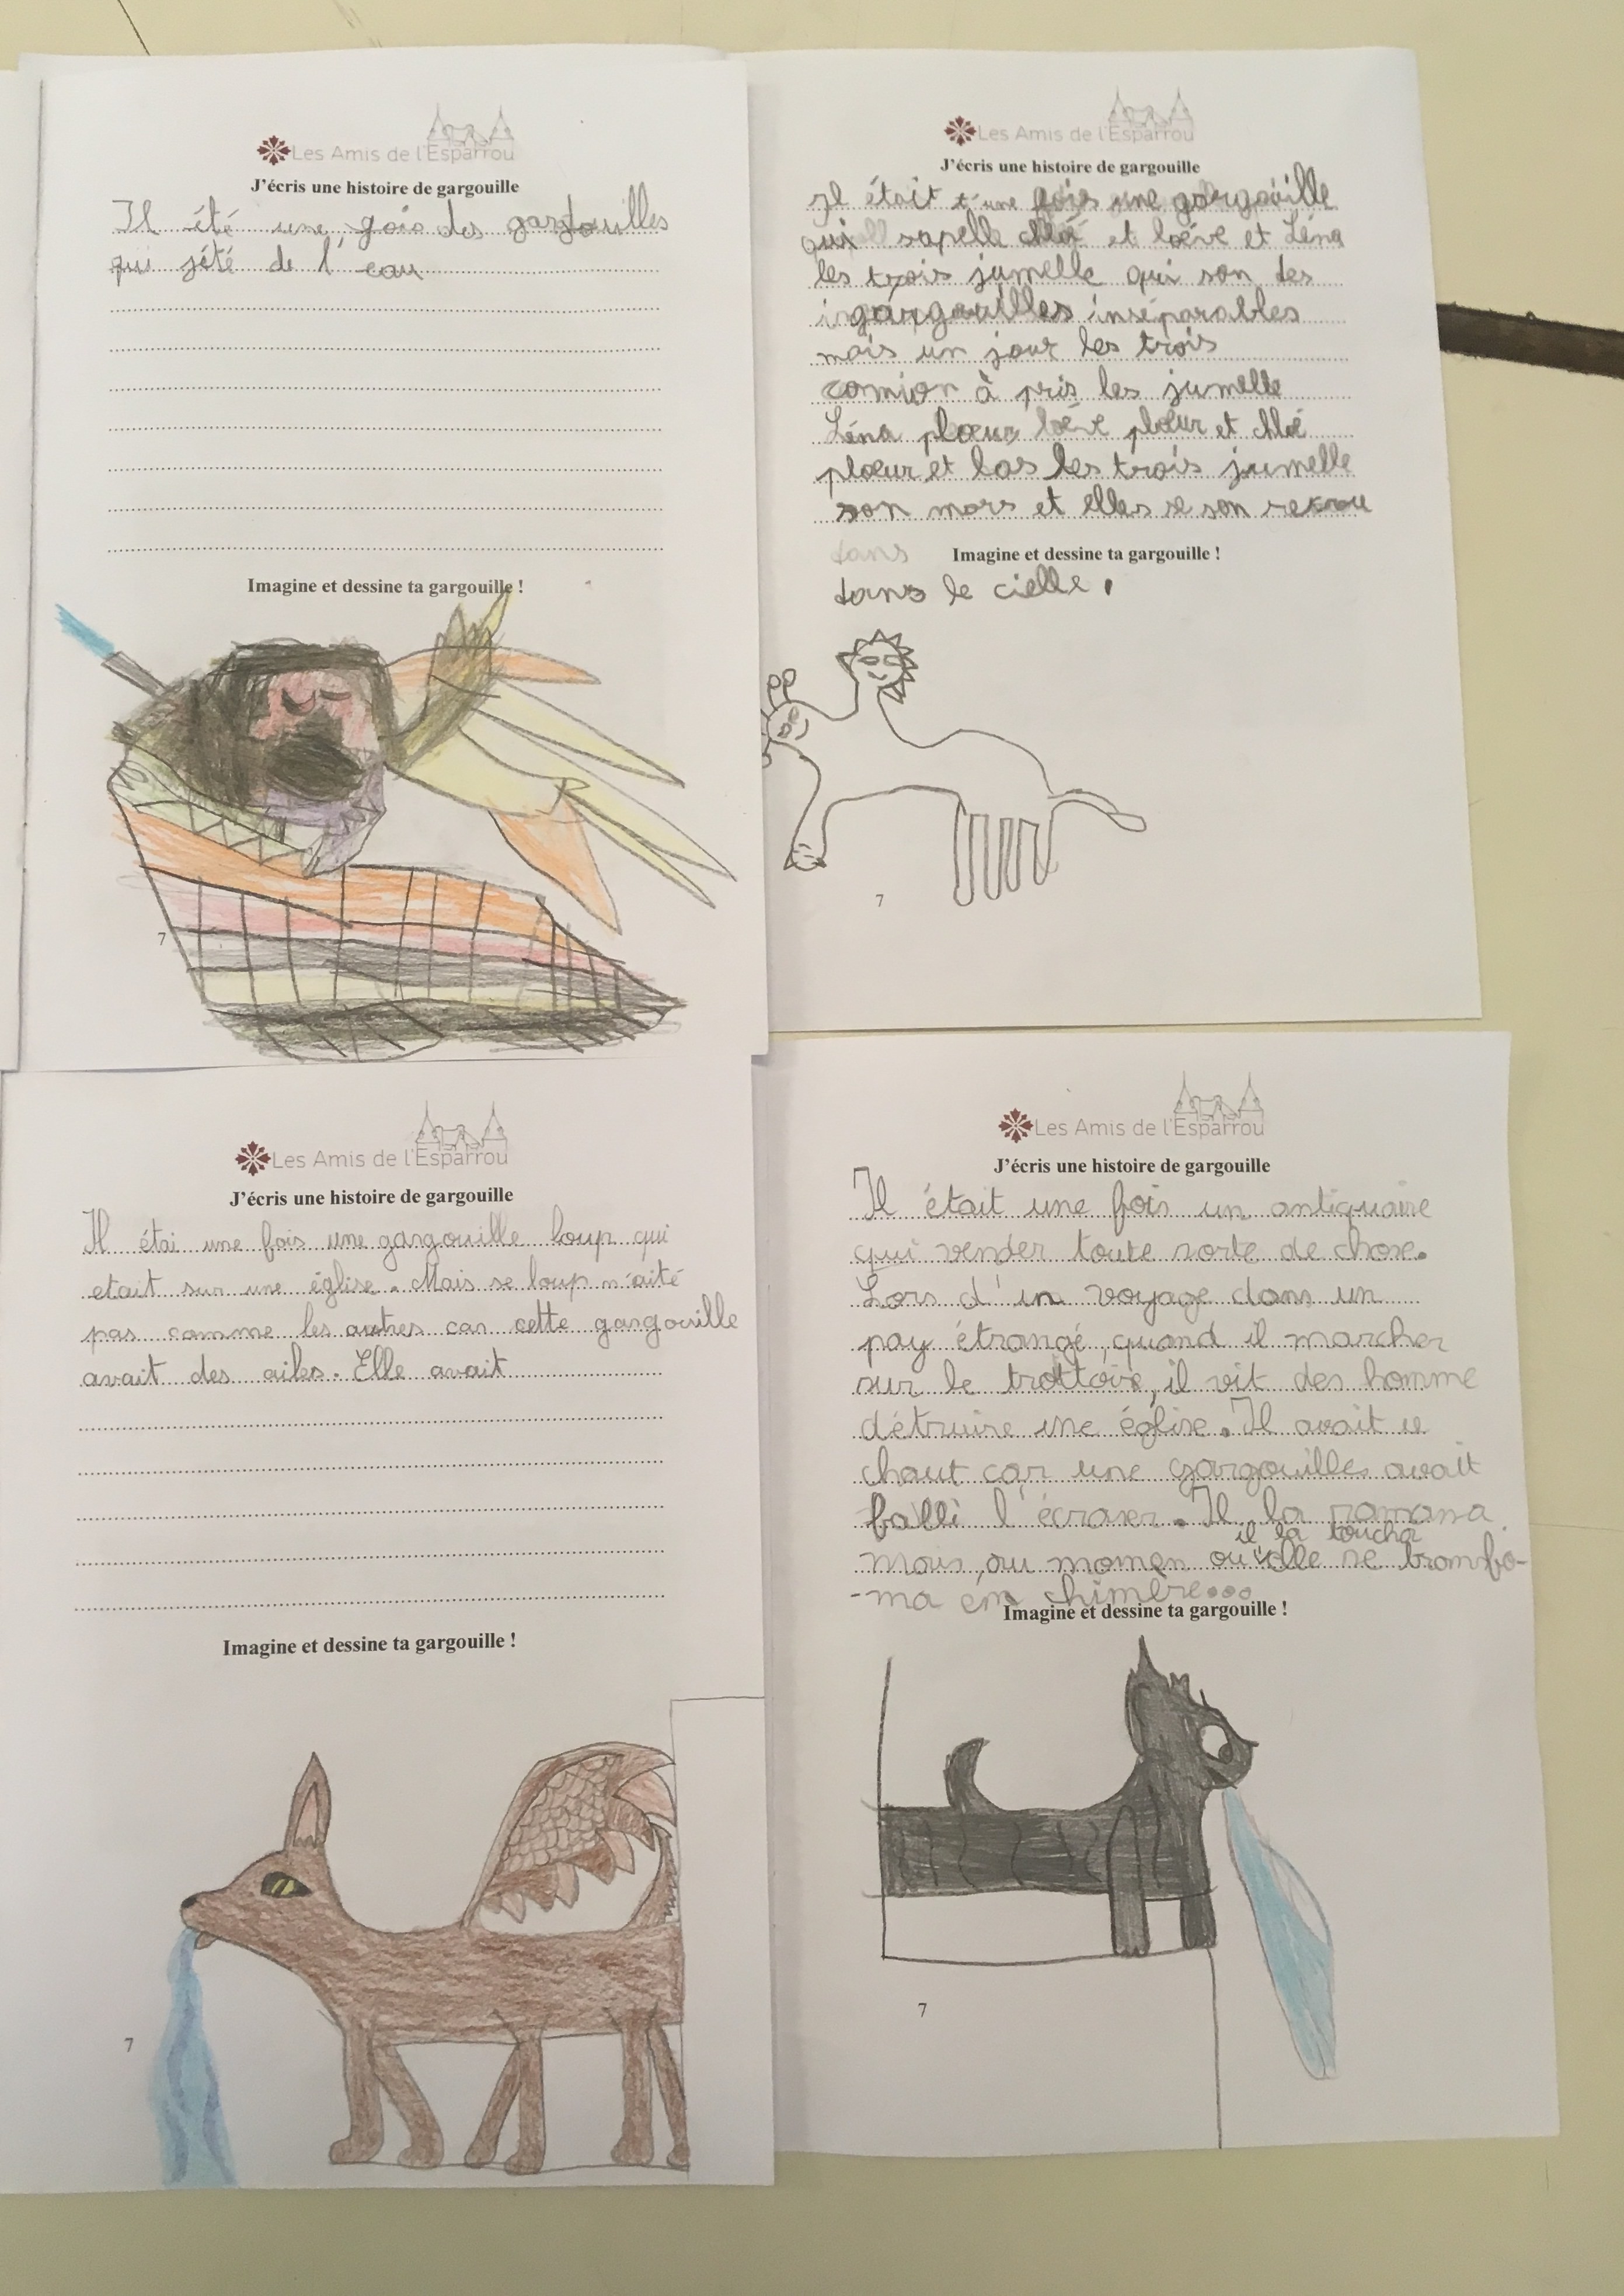 Les Amis de l'Esparrou
J'écris une histoire de gargouille
Il été une fois des gargouilles
qui jété de l'eau
Imagine et dessine ta gargouille !
7
Les Amis de l'Esparrou
J'écris une histoire de gargouille
Il était t'une fois une gargouille
qui sapelle chloé et loève et Léna
les trois jumelle qui son des
gargouilles inséparables
mais un jour les trois
comion à pris les jumelle
Léna plœur loève plœur et chloé
plœur et las les trois jumelle
son mors et elles se son retrou
dans
Imagine et dessine ta gargouille !
dans le cielle.
7
Les Amis de l'Esparrou
J'écris une histoire de gargouille
Il étai une fois une gargouille loup qui
etait sur une église. Mais se loup n'aité
pas comme les autres car cette gargouille
avait des ailes. Elle avait
Imagine et dessine ta gargouille !
7
Les Amis de l'Esparrou
J'écris une histoire de gargouille
Il était une fois un antiquaire
qui vender toute sorte de chose.
Lors d'un voyage dans un
pay étrangé, quand il marcher
sur le trottoire, il vit des homme
détruire une église. Il avait u
chaut car une gargouilles avait
falli l'écraser. Il la ramana
il la toucha
mais, au momen ou elle se transfo-
-ma en chimère...
Imagine et dessine ta gargouille !
7